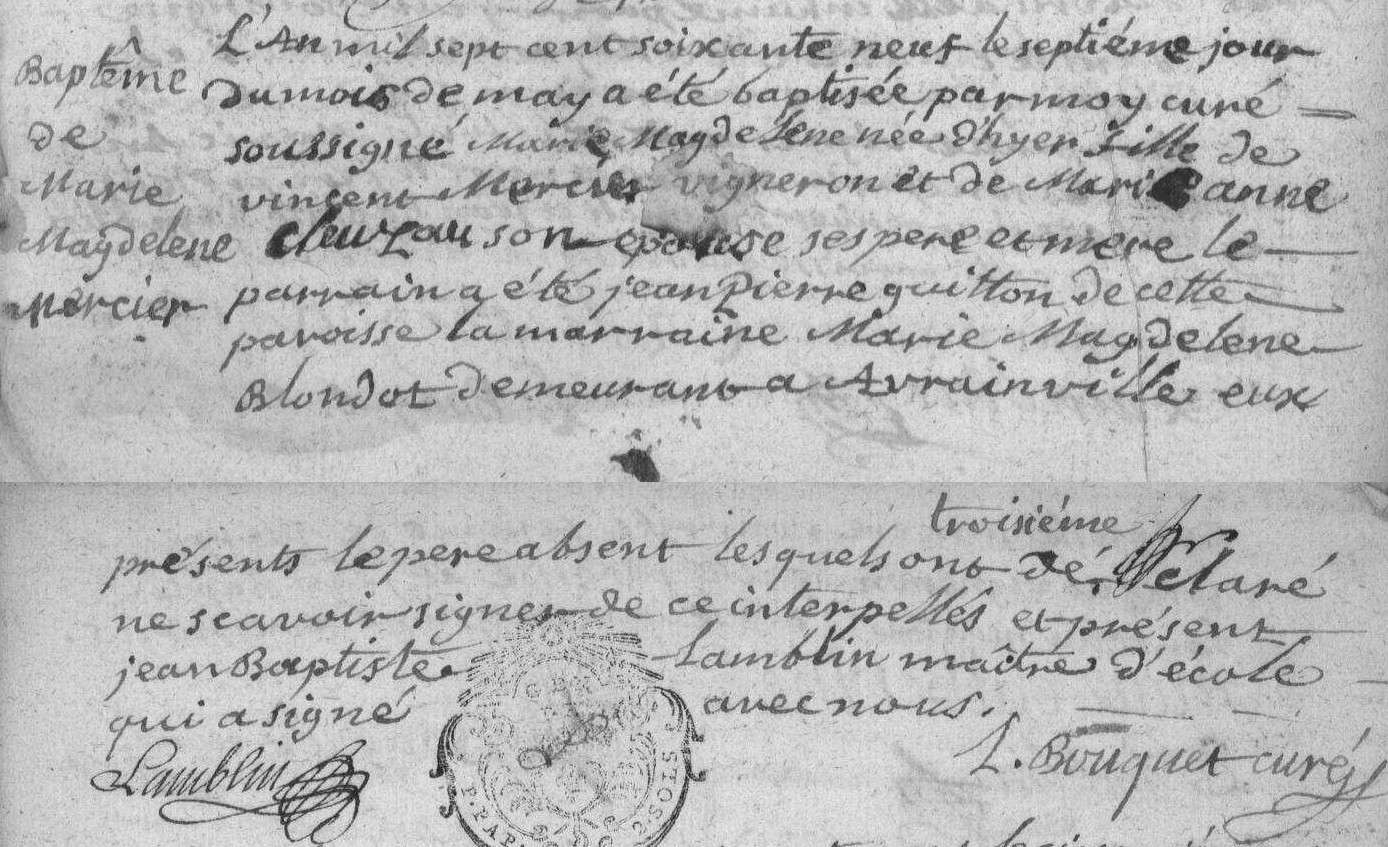 Baptême
de
Marie
Magdelene
Mercier
L'An mil sept cent soixante neuf le septiéme jour
du mois de may a été baptisée par moy curé
soussigné Marie Magdelene née d'hyer fille de
vincent Mercier vigneron et de Marie anne
son epouse ses pere et mere le
parrain a été jean pierre guitton de cette
paroisse la marraine Marie Magdelene
Blondot demeurant a Avrainville eux
troisiéme
présents le pere absent lesquels ont dé claré
ne scavoir signer de ce interpellés et présent
jean Baptiste Lamblin maître d'école
qui a signé avec nous.
Lamblin
L. Bouquet curé
GEN
P. PAP 2 SOLS